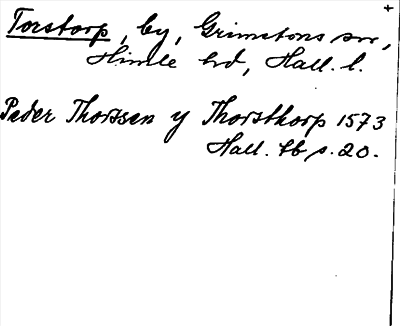 Torstorp, by, Grimetons sn,
Himle hd, Hall. l.
Peder Thorssen y Thorsthorp 1573
Hall. tb s. 20.